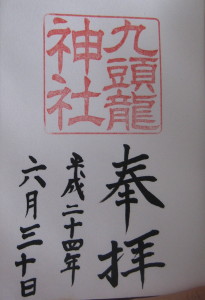 九頭龍
神社
奉拝
平成二十四年
六月三十日